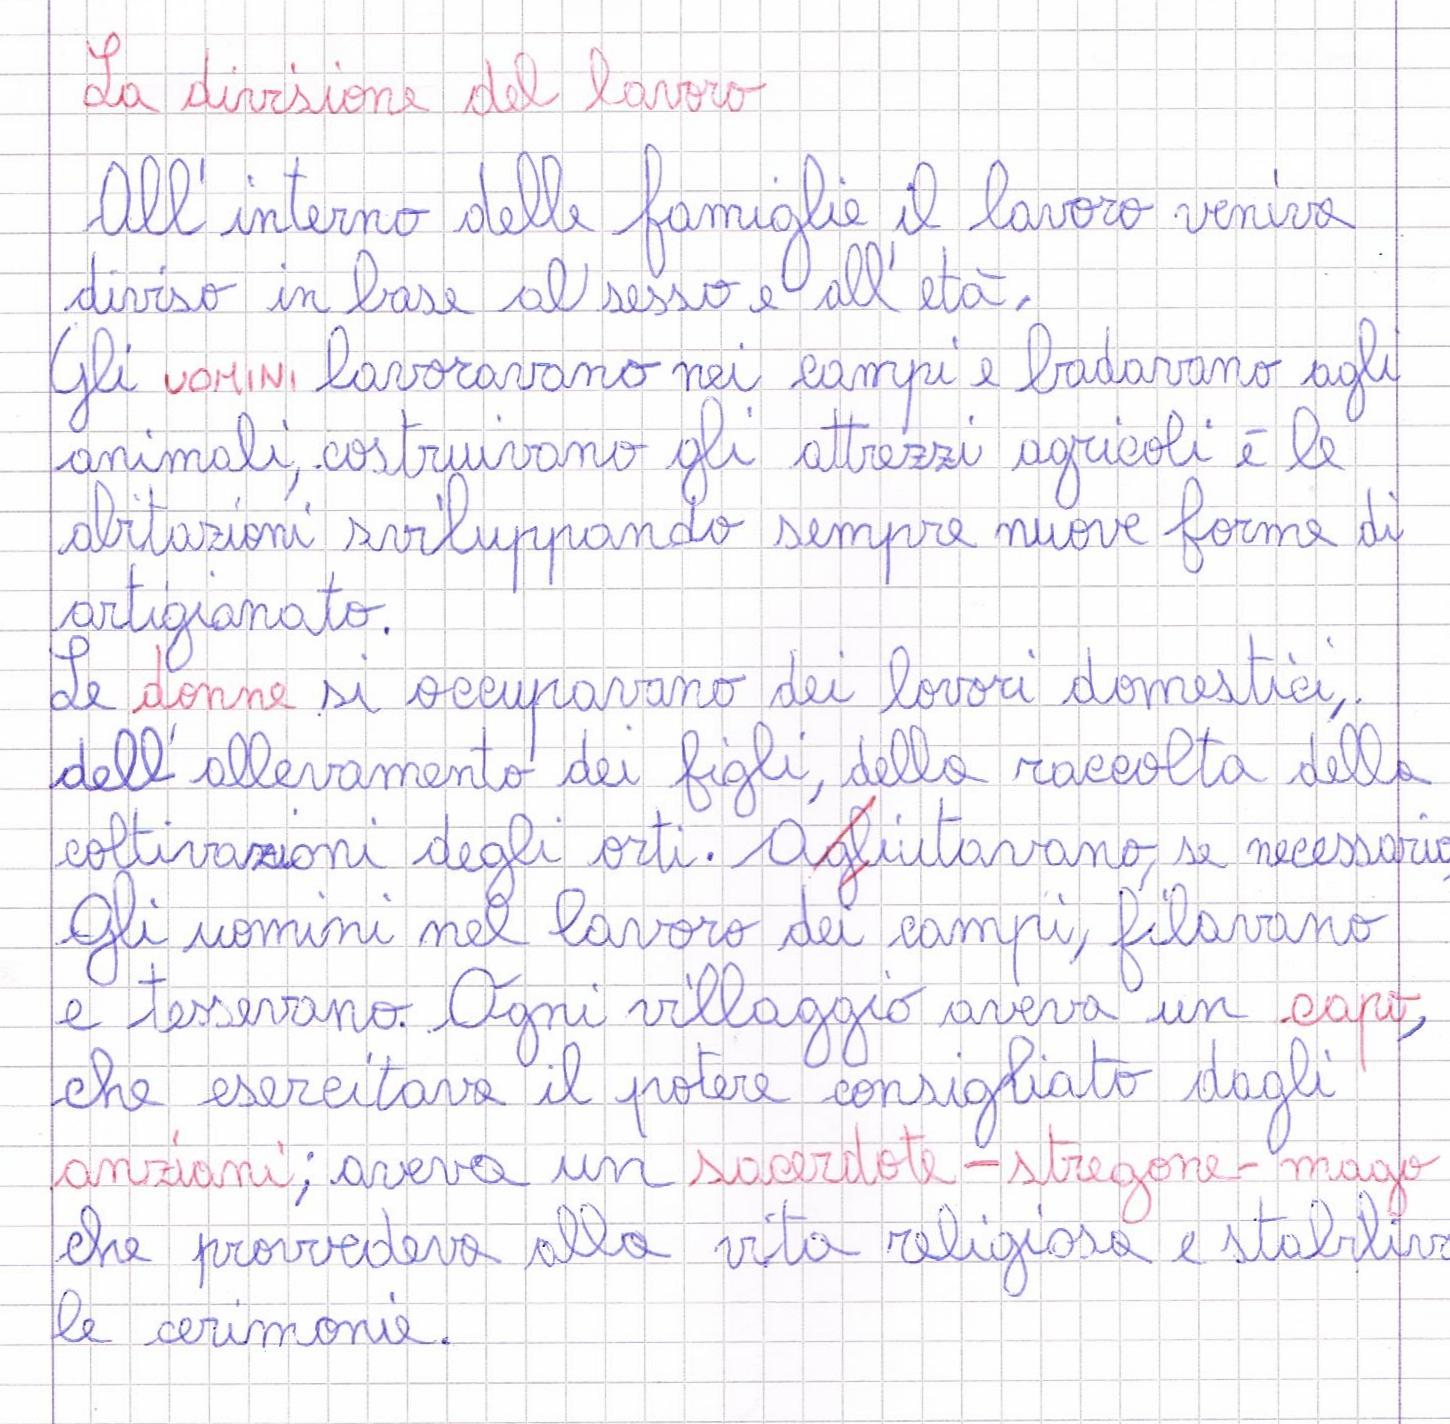 La divisione del lavoro
All'interno delle famiglie il lavoro veniva
diviso in base al sesso e all'età.
Gli UOMINI lavoravano nei campi e badavano agli
animali, costruivano gli attrezzi agricoli e le
abitazioni sviluppando sempre nuove forme di
artigianato.
Le donne si occupavano dei lavori domestici,
dell'allevamento dei figli, della raccolta della
coltivazioni degli orti. Agliutavano, se necessario,
Gli uomini nel lavoro dei campi, filavano
e tessevano. Ogni villaggio aveva un capo,
che esercitava il potere consigliato dagli
anziani; aveva un sacerdote - stregone - mago
che provvedeva alla vita religiosa e stabiliva
le cerimonie.